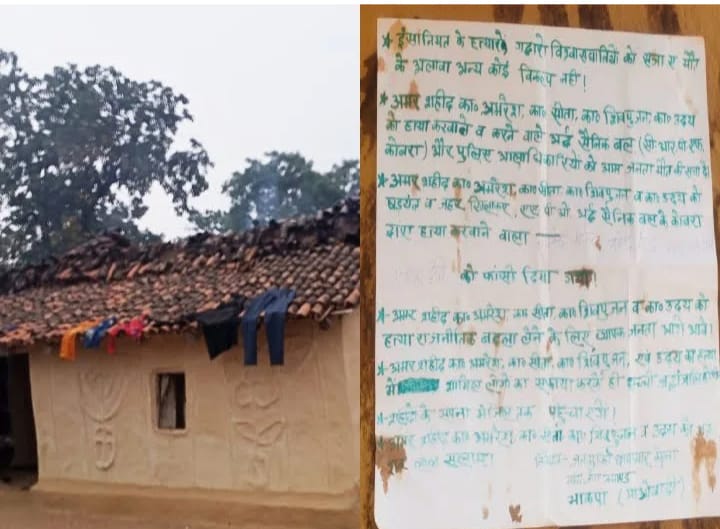 * इंसानियत के हत्यारे गद्दारो विश्वासघातियों को सजा ए मौत
के अलावा अन्य कोई विकल्प नहीं!
* अमर शहीद का० अमरेश, का० सीता, का० शिवपुजन, का० उदय
को हत्या करवाने व करने वाले अर्द्ध सैनिक बल (सी आर पी एफ
कोबरा) और पुलिस आलाधिकारियों को आम जनता मौत की सजा दें
* अमर शहीद का० अमरेश, का० सीता का० शिवपुजन व का० उदय को
षड्यंत्र व जहर खिलाकर, एस पी ओ अर्द्ध सैनिक बल के कोबरा
द्वारा हत्या करवाने वाला —
को फांसी दिया गया!
* अमर शहीद का० अमरेश, का० सीता, का० शिवपुजन व का० उदय को
हत्या राजनीतिक बदला लेने के लिए व्यापक जनता आगे आवें।
* अमर शहीद का० अमरेश, का० सीता, का० शिवपुजन, एवं उदय का हत्या
में शामिल लोगों का सफाया करना ही सच्ची
* शहीदों के अपना
* अमर शहीद का० अमरेश, का० सीता का० शिवपुजन व उदय को
लाल सलाम।
भाकपा (माओवादी)